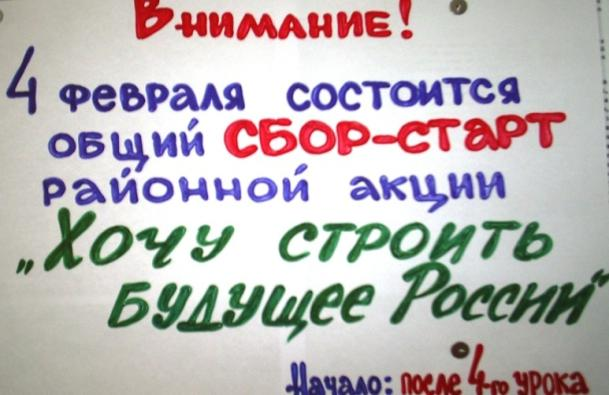 Внимание!
4 февраля состоится
общий СБОР-СТАРТ
районной акции
„Хочу строить
будущее России"
Начало: после 4-го урока